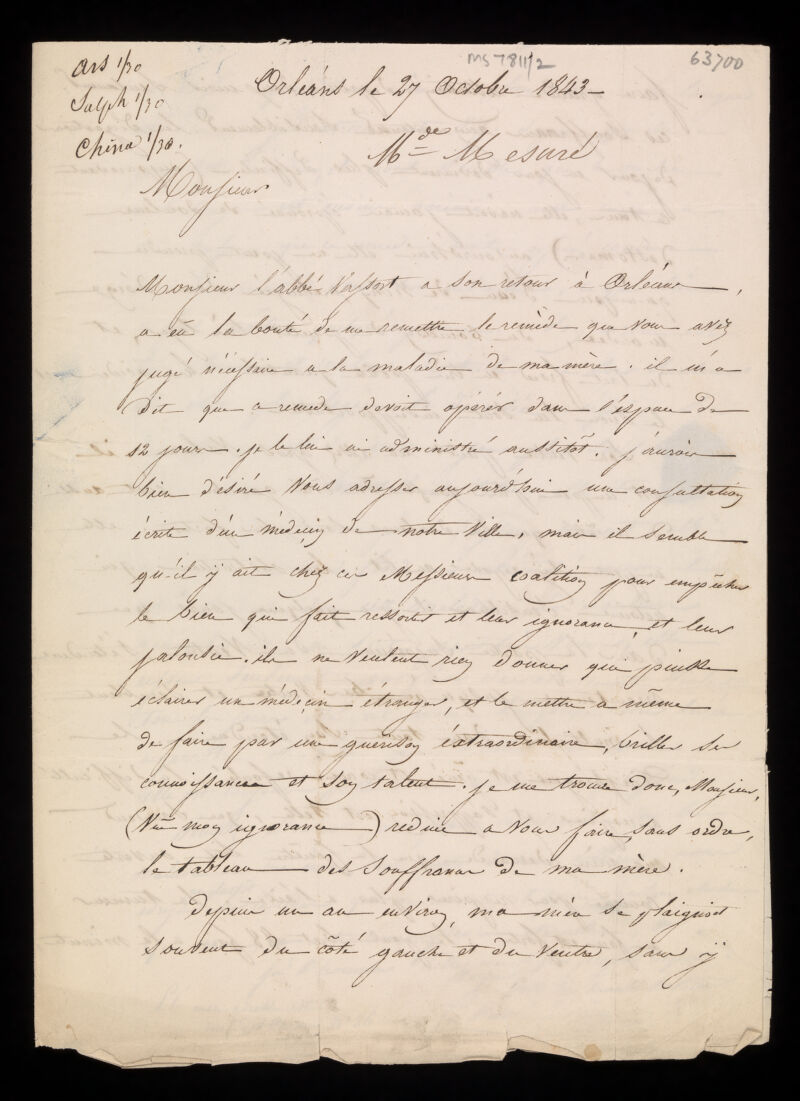 MS 7811/2
63700
Ars 1/30
Sulph 1/30
China 1/30.
Orléans le 27 Octobre 1843-
Mde Mesuré
Monsieur
Monsieur l'abbé a son retour à Orléans,
a eû la bonté de me remettre le remède que vous avez
jugé nécessaire a la maladie de ma mère. il m'a
dit que ce remede devoit opérér dans l'espace de
12 jours. je le lui ai administré aussitôt. j'aurois
bien désiré vous adresser aujourd'hui une consultation
écrite d'un médecin de notre ville, mais il semble
qu'il ÿ ait chez ces Messieurs coalition pour empêcher
le bien qui fait ressortir et leur ignorance, et leur
jalousie. ils ne veulent rien donner qui puisse
éclairer un médecin étranger, et le mettre a même
de faire par une guérison éxtraordinaire, briller ses
connoissances et son talent. je me trouve donc, Monsieur,
(Vû mon ignorance) reduite a vous faire, sans ordre,
le tableau des souffrances de ma mère.
depuis un an environ, ma mère se plaignoit
souvent du côté gauche et du ventre, sans ÿ